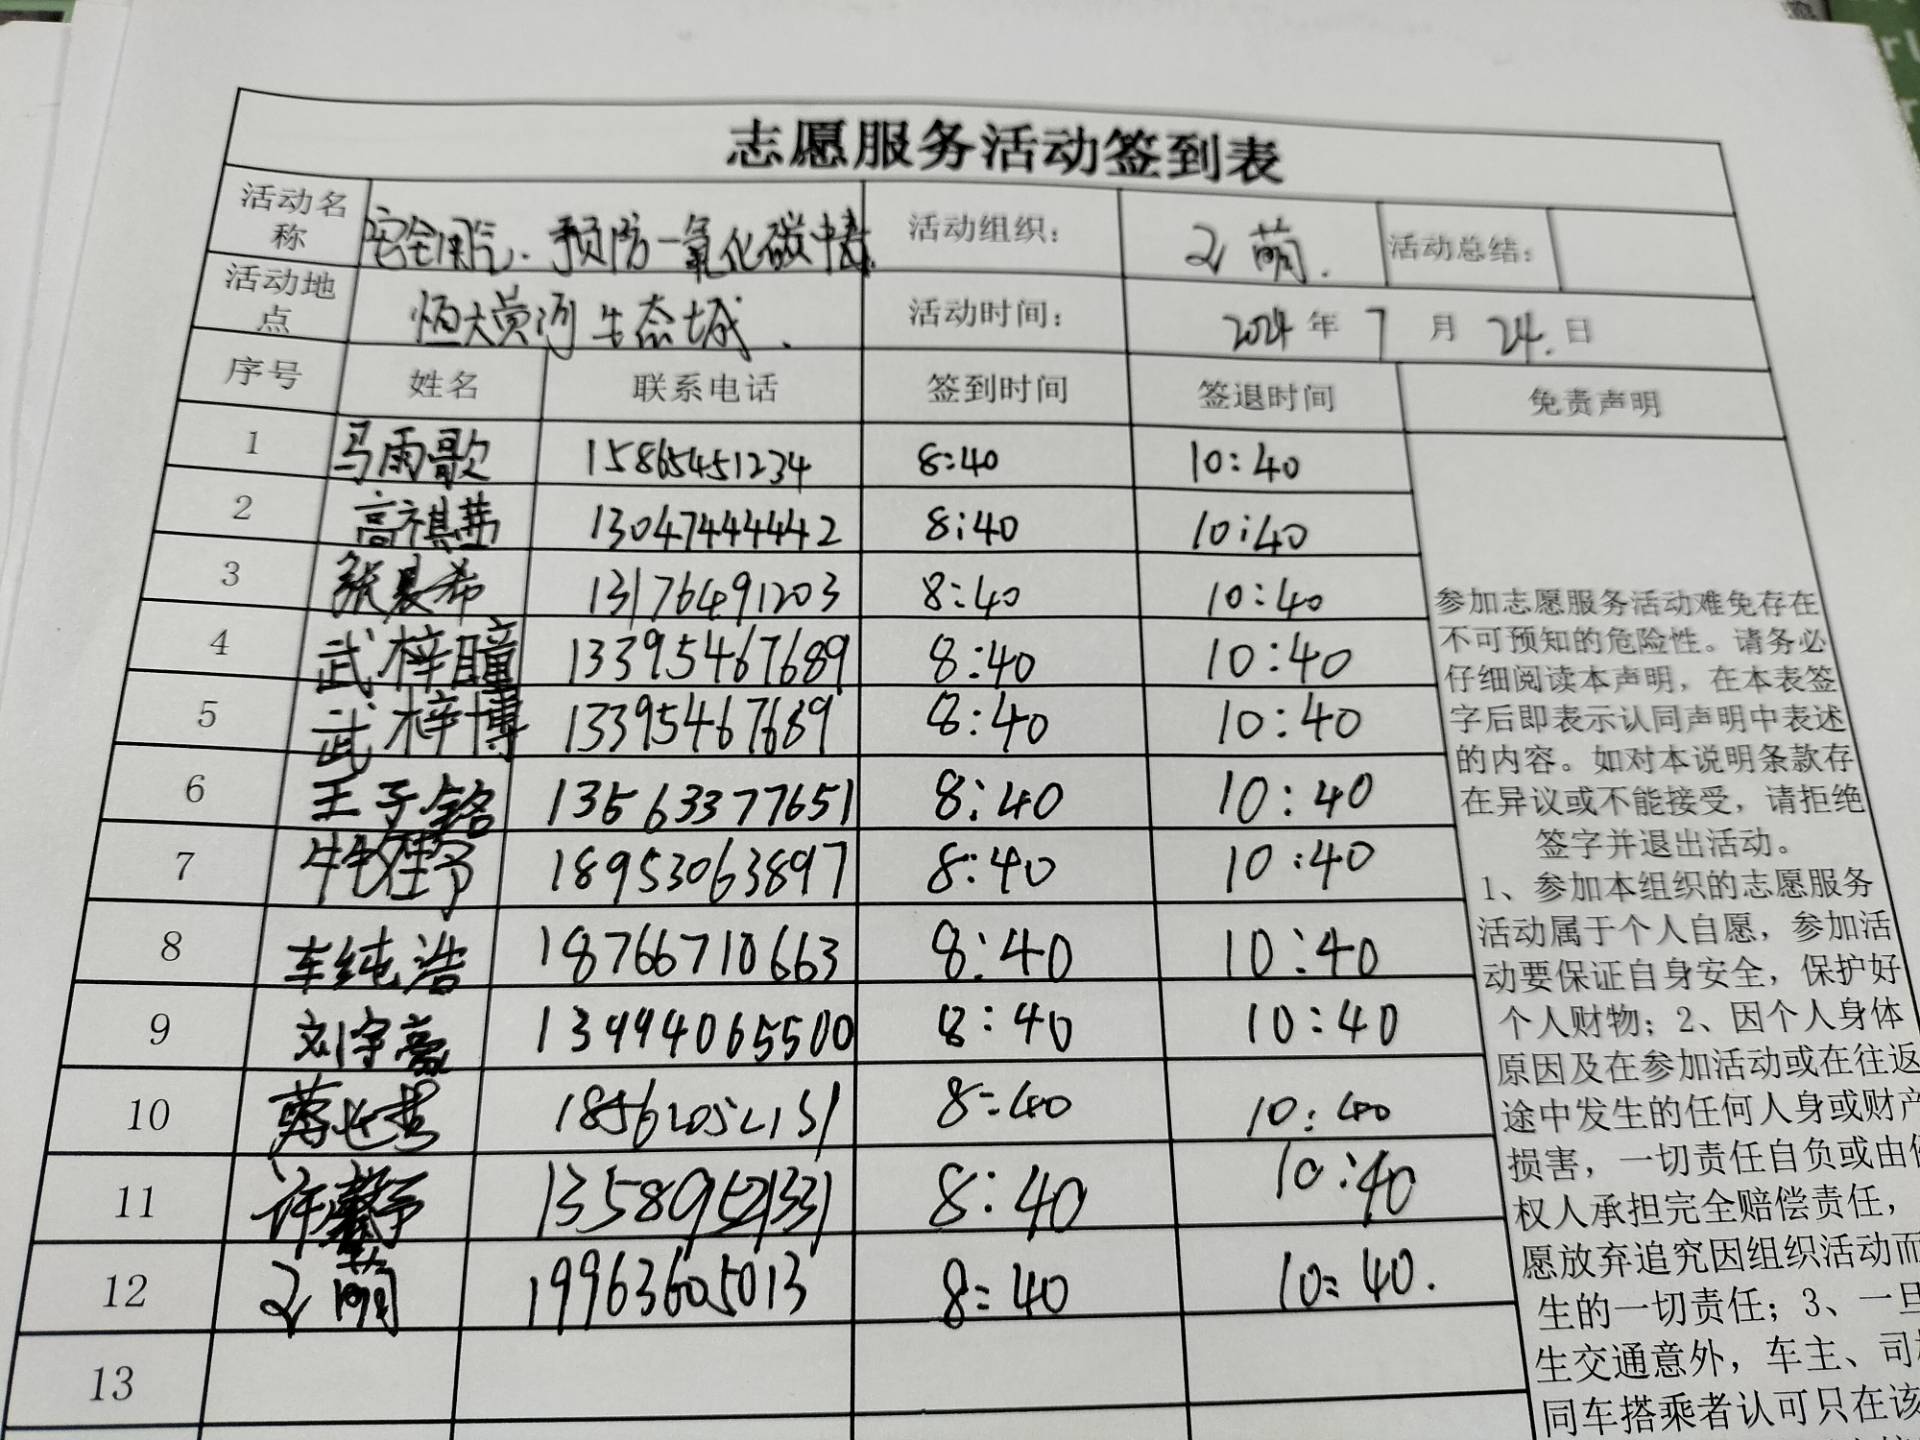 志愿服务活动签到表
活动名称 安全用气.预防一氧化碳中毒. 活动组织: 王萌. 活动总结:
活动地点 恒大黄河生态城. 活动时间: 2024年7月24.日
序号 姓名 联系电话 签到时间 签退时间 免责声明
1 马雨歌 15865451234 8:40 10:40
2 高祺 13047444442 8:40 10:40
3 张晨希 13176491203 8:40 10:40
4 武梓瞳 13395467689 8:40 10:40
5 武梓博 13395467689 8:40 10:40
6 王子铭 13563377651 8:40 10:40
7 牛牧野 18953063897 8:40 10:40
8 车纯浩 18766710663 8:40 10:40
9 刘宇豪 13994065500 8:40 10:40
10 18562052131 8:40 10:40
11 许馨予 13589521331 8:40 10:40
12 王萌 19963605013 8:40 10:40.
13
参加志愿服务活动难免存在
不可预知的危险性。请务必
仔细阅读本声明，在本表签
字后即表示认同声明中表述
的内容。如对本说明条款存
在异议或不能接受，请拒绝
签字并退出活动。
1、参加本组织的志愿服务
活动属于个人自愿，参加活
动要保证自身安全，保护好
个人财物；2、因个人身体
原因及在参加活动或在往返
途中发生的任何人身或财产
损害，一切责任自负或由
权人承担完全赔偿责任，
愿放弃追究因组织活动而
生的一切责任；3、一旦
生交通意外，车主、司
同车搭乘者认可只在该